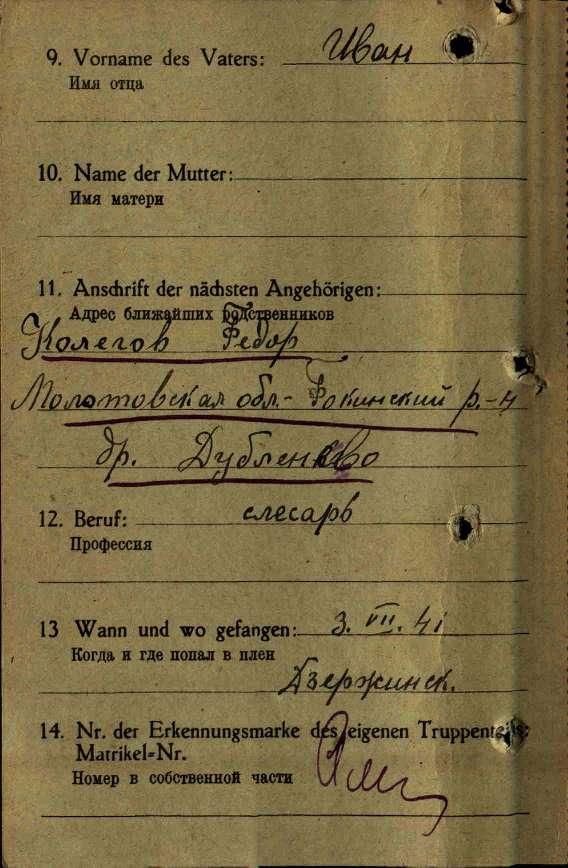 9. Vorname des Vaters: Иван
Имя отца
10. Name der Mutter:
Имя матери
11. Anschrift der nächsten Angehörigen:
Адрес ближайших родственников
Колегов Федор
Молотовская обл.- Фокинский р.-н
др. Дубленево
12. Beruf: слесарь
Профессия
13 Wann und wo gefangen: 3. VII. 41
Когда и где попал в плен
Дзержинск.
14. Nr. der Erkennungsmarke des eigenen Truppenteils:
Matrikel-Nr.
Номер в собственной части